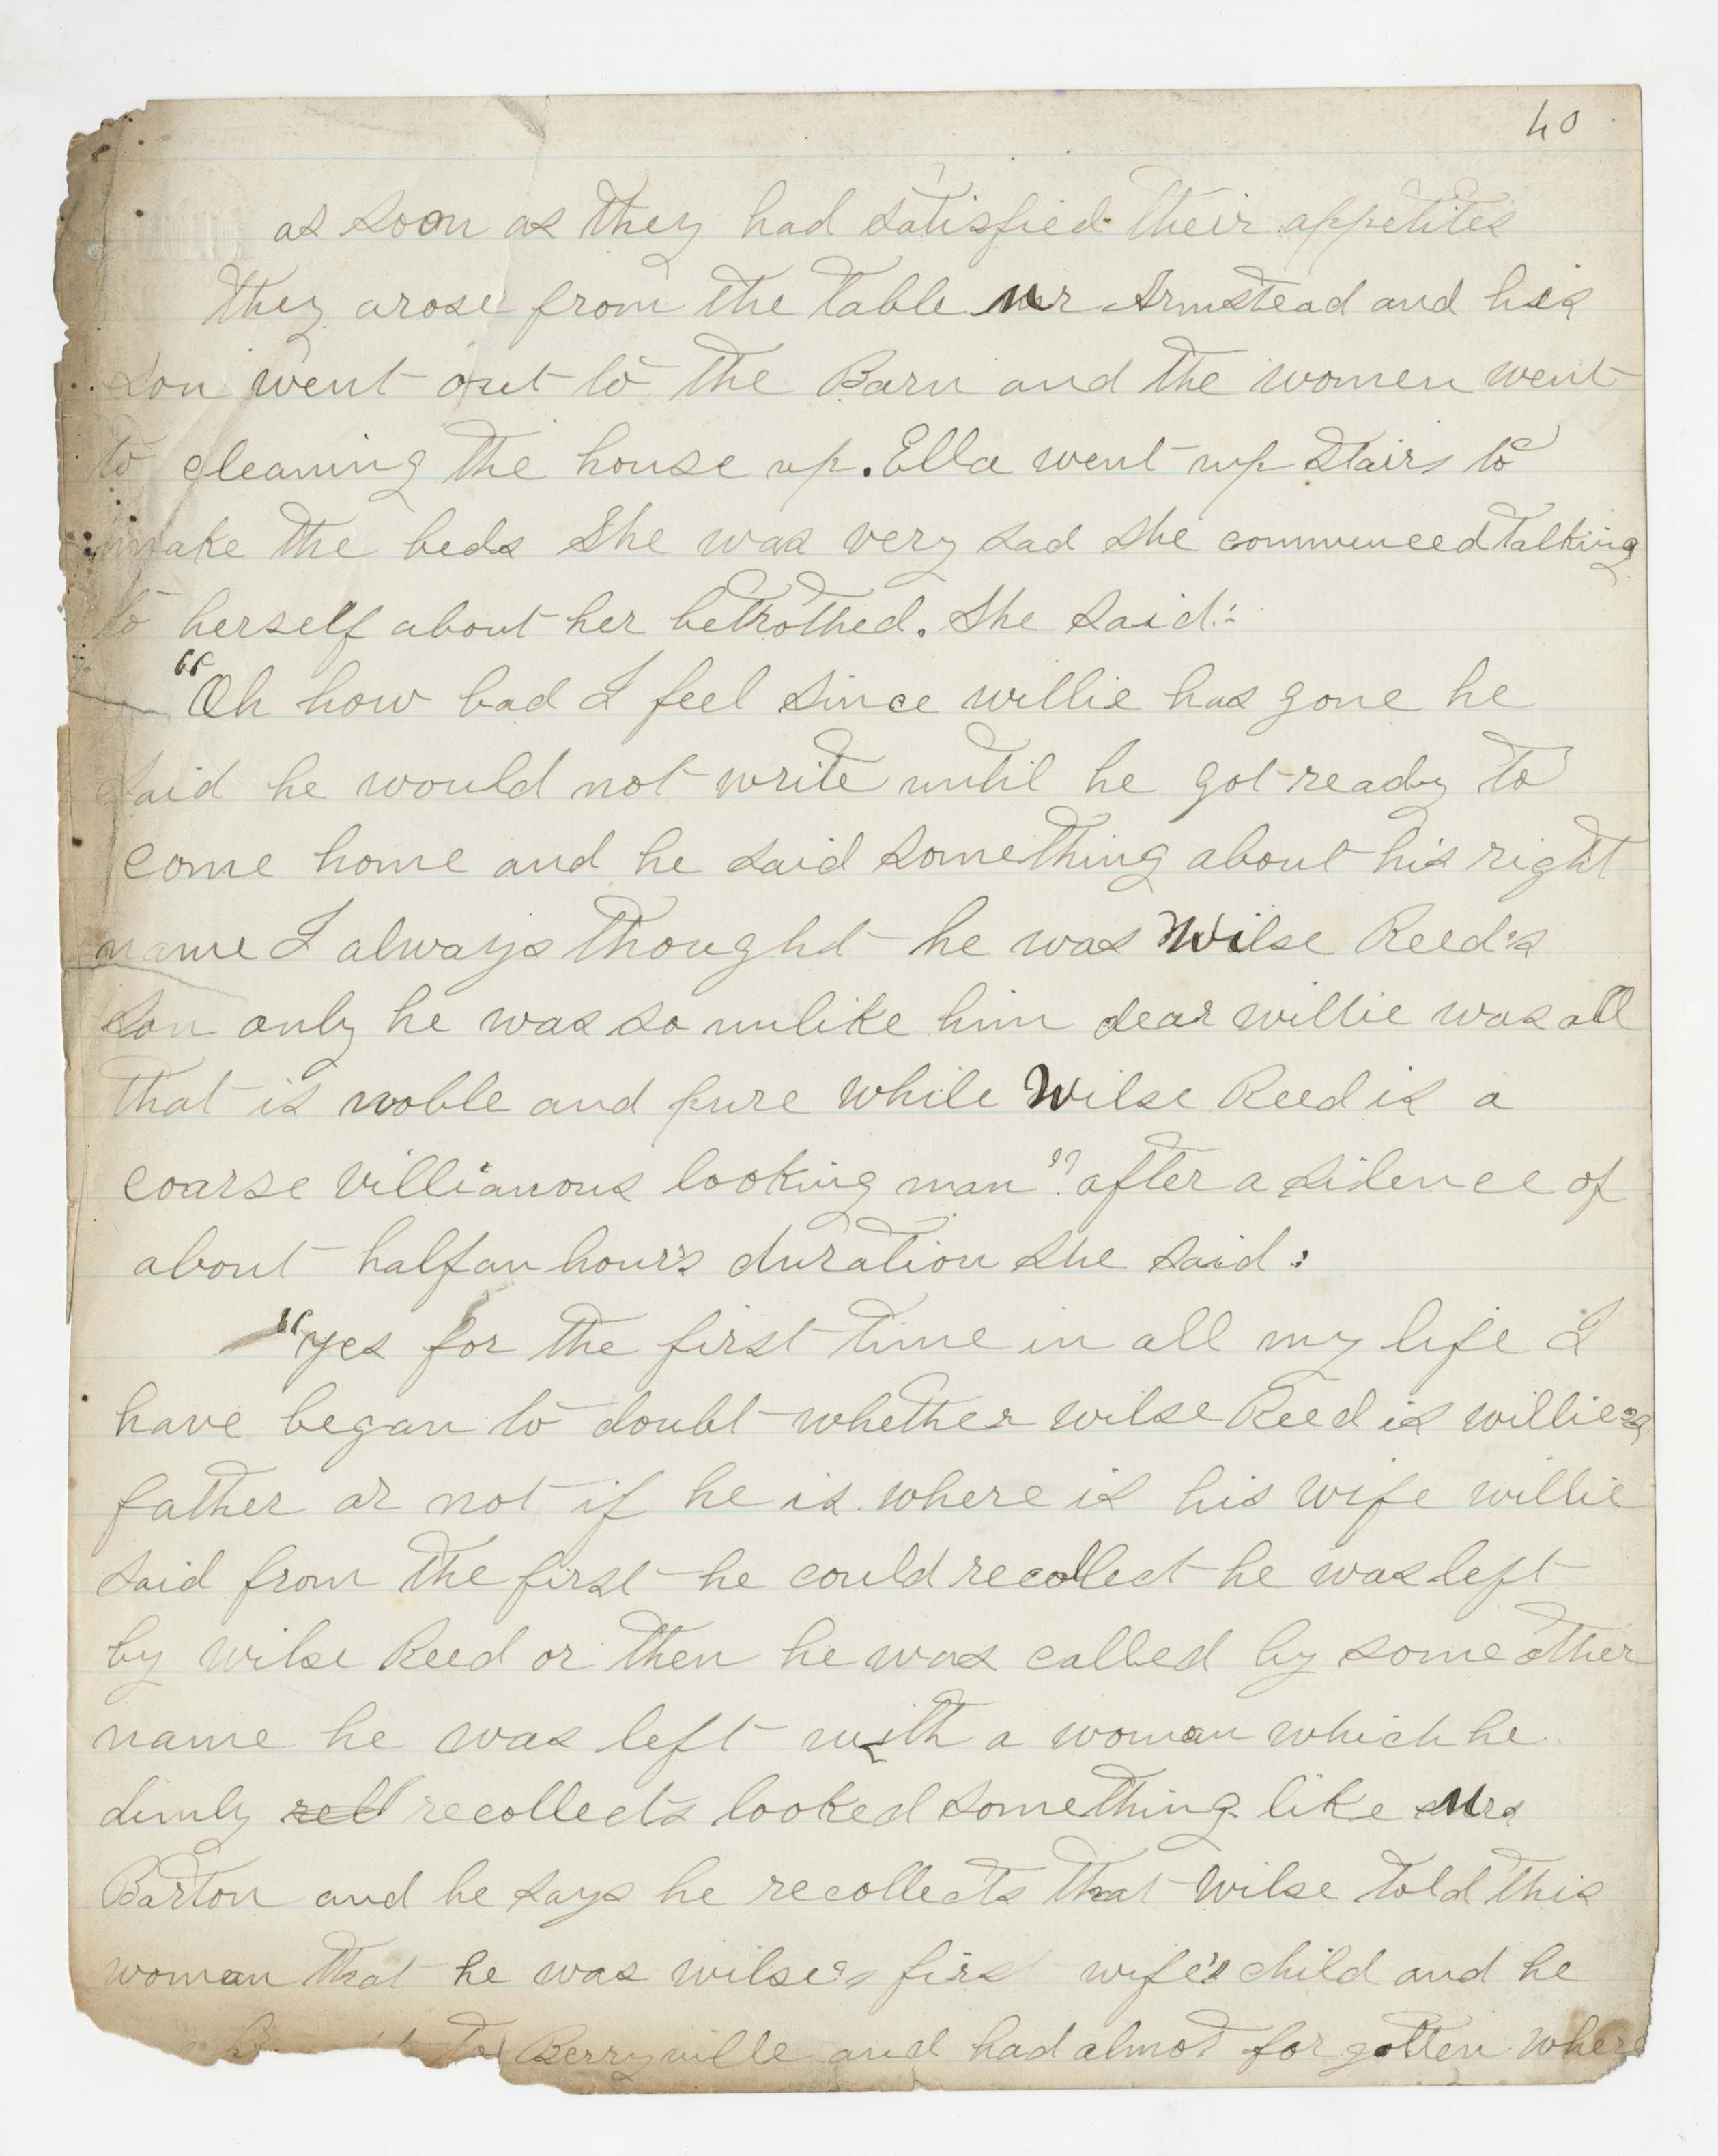 40
as soon as they had satisfied their appetites
they arose from the table Mr Armstead and his
son went out to the Barn and the women went
to cleaning the house up. Ella went up stairs to
make the beds She was very sad she commenced talking
to herself about her betrothed. She said:-
"Oh how bad I feel since willie has gone he
said he would not write until he got ready to
come home and he said something about his right
name I always thought he was Wilse Reed's
son only he was so unlike him dear willie was all
that is noble and pure while Wilse Reed is a
coarse villianous looking man". after a silence of
about half an hour's duration she said:
"yes for the first time in all my life I
have began to doubt whether wilse Reed is willie's
father or not if he is where is his wife willie
said from the first he could recollect he was left
by wilse Reed or then he was called by some other
name he was left with a woman which he
dimly rell recollects looked something like Mrs
Barton and he says he recollects that wilse told this
woman that he was wilse's first wife's child and he
to Berryville and had almost forgotten where